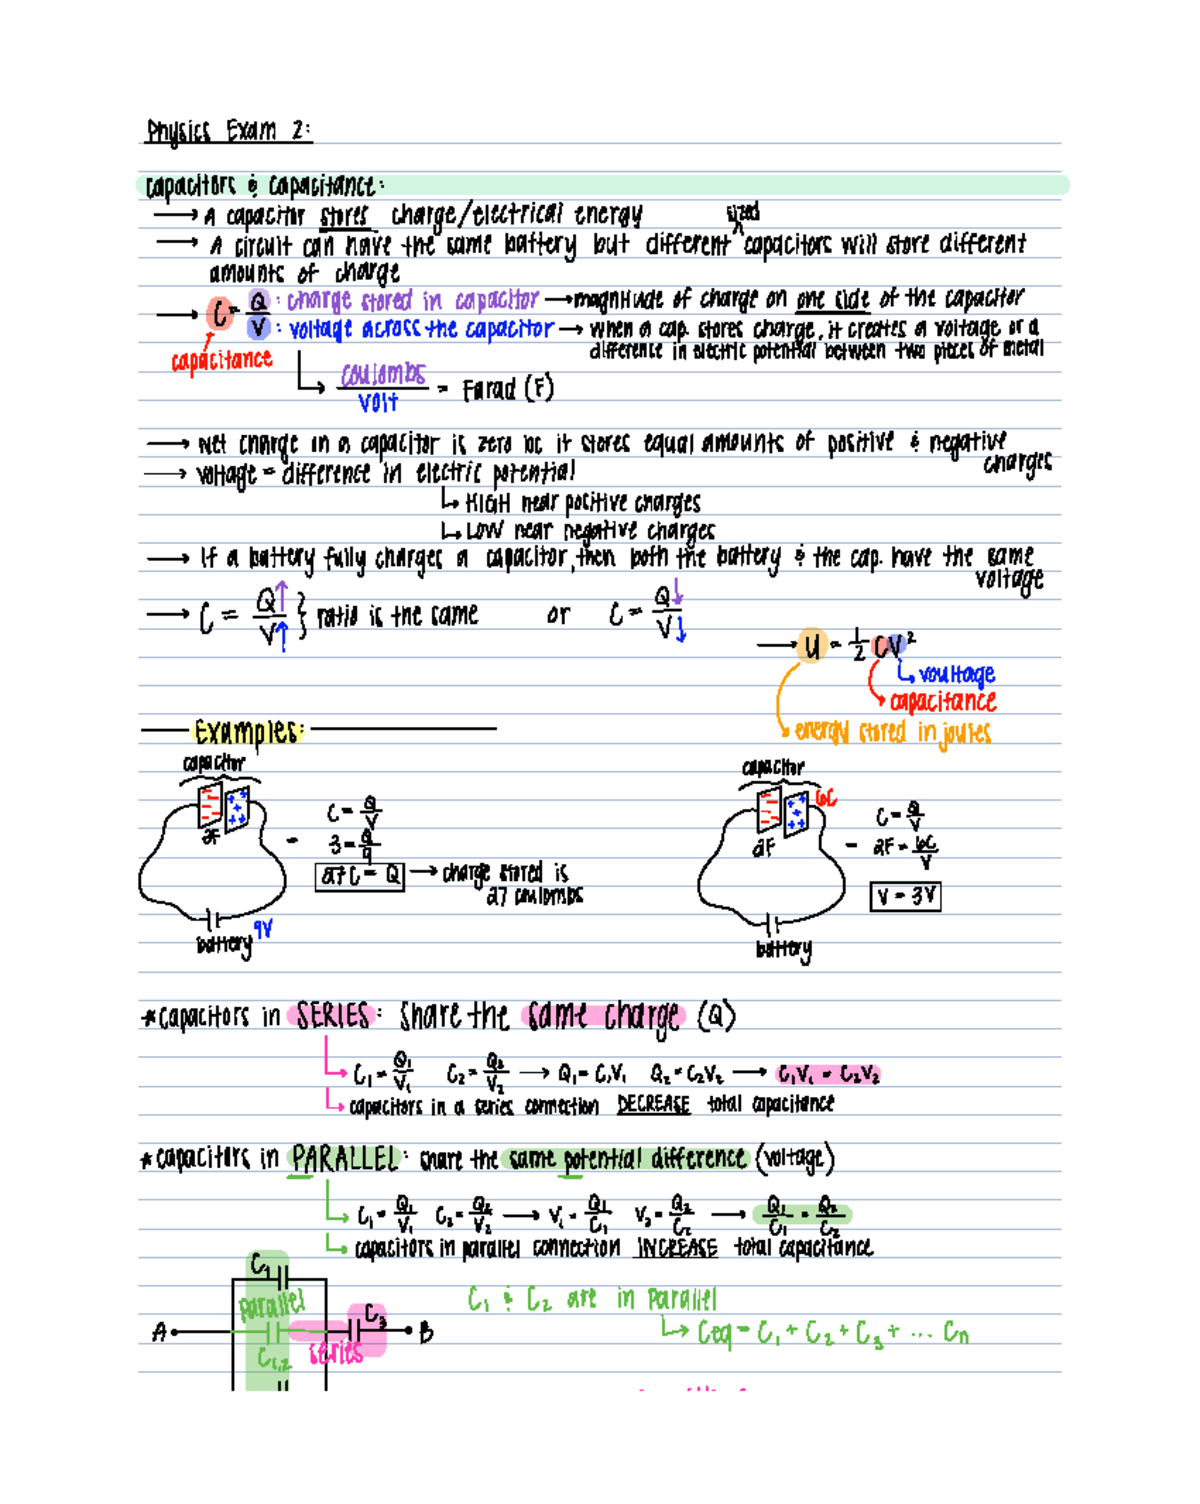 Physics Exam 2:
capacitors & capacitance:
→ A capacitor stores charge/electrical energy
→ A circuit can have the same battery but different ^sized capacitors will store different
amounts of charge
→ C = Q/V
Q : charge stored in capacitor → magnitude of charge on one side of the capacitor
V : voltage across the capacitor → when a cap. stores charge, it creates a voltage or a
difference in electric potential between two pieces of metal
capacitance
↳ coulombs/volt = Farad (F)
→ Net charge in a capacitor is zero bc it stores equal amounts of positive & negative
charges
→ voltage = difference in electric potential
↳ HIGH near positive charges
↳ LOW near negative charges
→ If a battery fully charges a capacitor, then both the battery & the cap. have the same
voltage
→ C = Q↑/V↑ } ratio is the same or C = Q↓/V↓
→ U = 1/2 CV²
↳ voultage
capacitance
energy stored in joules
Examples:
capacitor
C = Q/V
3 = Q/9
27C = Q → charge stored is
27 coulombs
9V
battery
capacitor
6C
2F
C = Q/V
2F = 6C/V
V = 3V
battery
*capacitors in SERIES: share the same charge (Q)
↳ C₁ = Q₁/V₁ C₂ = Q₂/V₂ → Q₁ = C₁V₁ Q₂ = C₂V₂ → C₁V₁ = C₂V₂
↳ capacitors in a series connection DECREASE total capacitance
*capacitors in PARALLEL: share the same potential difference (voltage)
↳ C₁ = Q₁/V₁ C₂ = Q₂/V₂ → V₁ = Q₁/C₁ V₂ = Q₂/C₂ → Q₁/C₁ = Q₂/C₂
↳ capacitors in parallel connection INCREASE total capacitance
C₁
parallel
C₃
A
B
C₁,₂
series
C₁ & C₂ are in parallel
↳ Ceq = C₁ + C₂ + C₃ + ... Cn